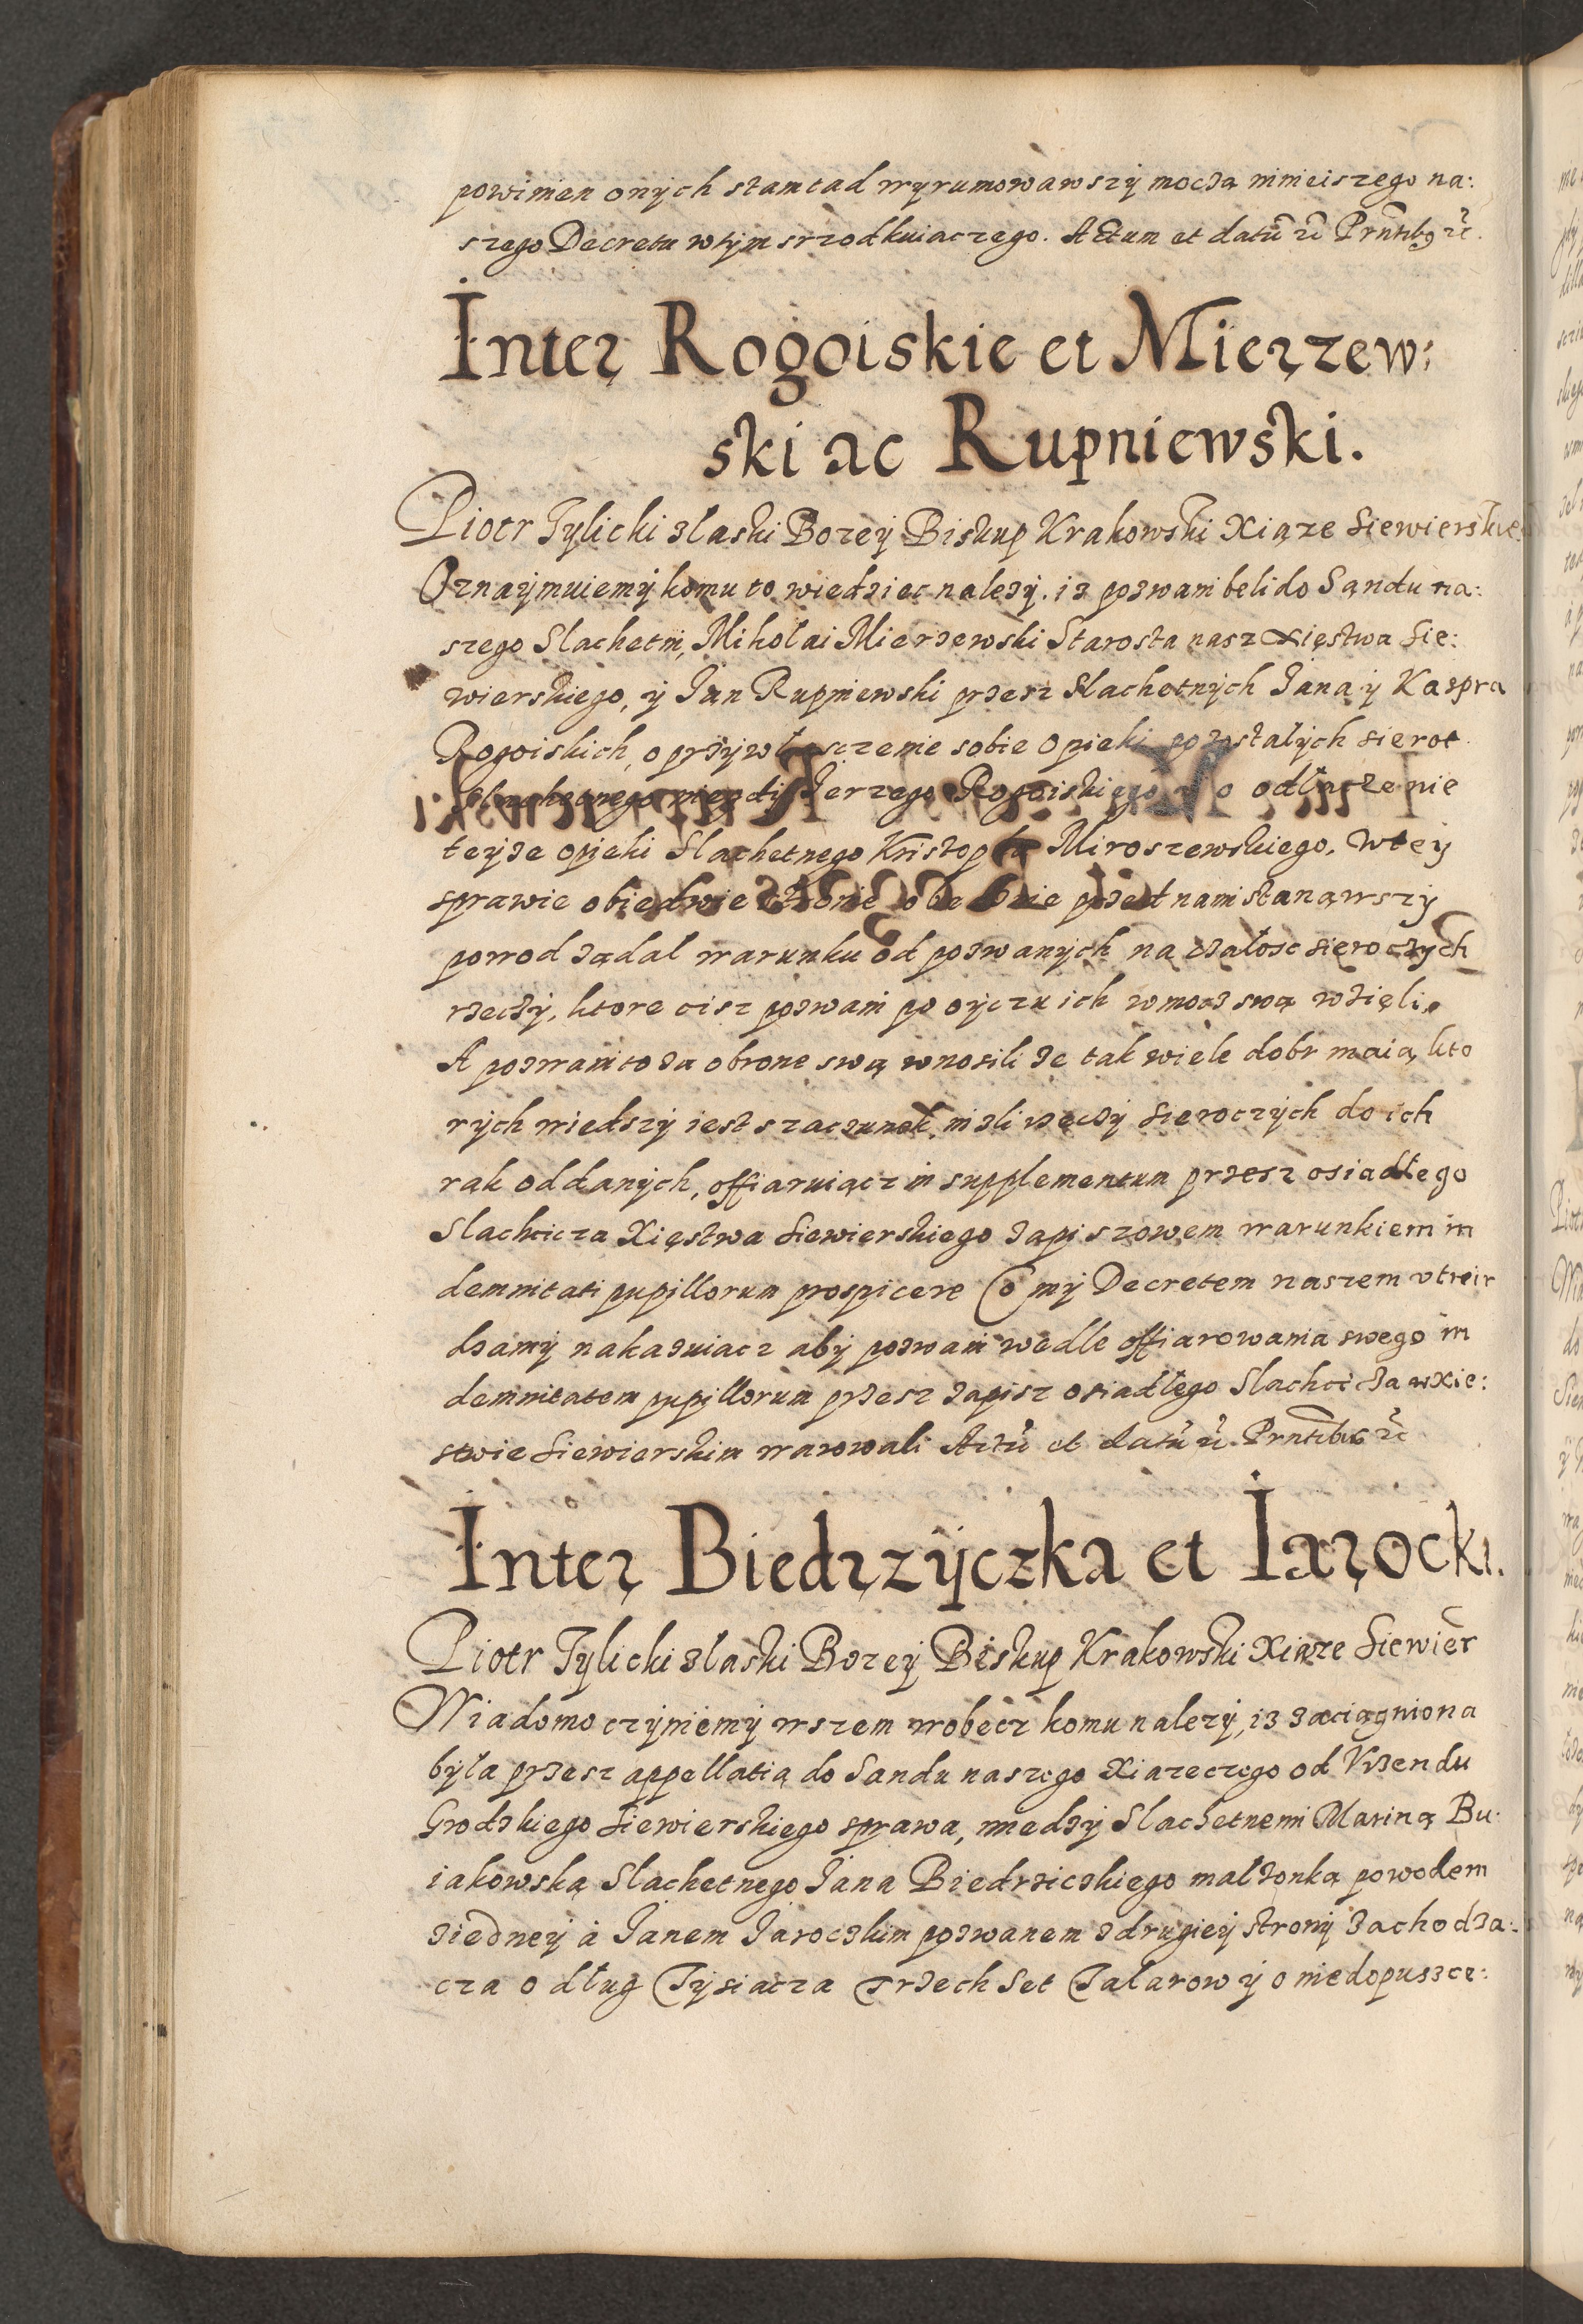 powinien onych stamtad wyrumowawszy moczą ninieiszego na:
szego Decretu w tym srzodkuiaczego. Actum et datū ꝛc̄ Prn̄tibꝫ ꝛc̄.
Inter Rogoiskie et Mierzew:
ski ac Rupniewski.
Piotr Tylicki z laski Bozey Biskup Krakowski Xiąze Siewierskie.
Oznaymuiemy komu to wiedziec nalezy. iz pozwani beli do Sąndu na:
szego Slachetni, Mikolai Mierzewski Starosta nasz Xięstwa Sie:
wierskiego, y Jan Rupniewski przesz Slachetnych Jana y Kaspra
Rogoiskich, o przywłasczenie sobie opieki pozostałych sierot
Slachetnego niegdy Jerzego Rogoiskiego y o odłączenie
teyze opieki Slachetnego Kristopha Miroszewskiego. W tey
sprawie obiedwie stronie obecznie przed nami stanąwszy
powod ządal warunku od pozwanych na czałosc sieroczych
rzeczy, ktore cisz pozwani po oyczu ich w mocz swą wzięli.
A pozwani to za obrone swą wnosili ze tak wiele dobr maią, kto
rych wiedszy iest szaczunek, nizli rzeczy sieroczych do ich
rak oddanych, offiaruiącz in supplementum przesz osiadłego
Slachcicza Xięstwa Siewierskiego zapiszowem warunkiem in
demnitati pupillorum prospicere (o) my Decretem naszem vtwir
dzamy nakazuiacz aby pozwani wedle offiarowania swego in
demnitatem pupillorum przesz zapisz osiadłego Slachcicza w Xie:
stwie Siewierskim warowali Actū et datū ꝛc̄. Prn̄tibus ꝛc̄
Inter Biedrzyczka et Iarocki.
Piotr Tylicki z laski Bozey Biskup Krakowski Xiąze Siewier
Wiadomo czyniemy wszem wobecz komu nalezy, iz zaciągniona
była przesz appellatią do Sandu naszego Xiazeczego od Vrzendu
Grodzkiego Siewierskiego sprawa, miedzy Slachetnemi Mariną Bu:
iakowską Slachetnego Jana Biedrziczkiego małzonką powodem
z iedney à Janem Jaroczkim pozwanem z drugiey strony zachodza:
cza o dług Tysiacza Trzech Set Talarow y o niedopuszcz: